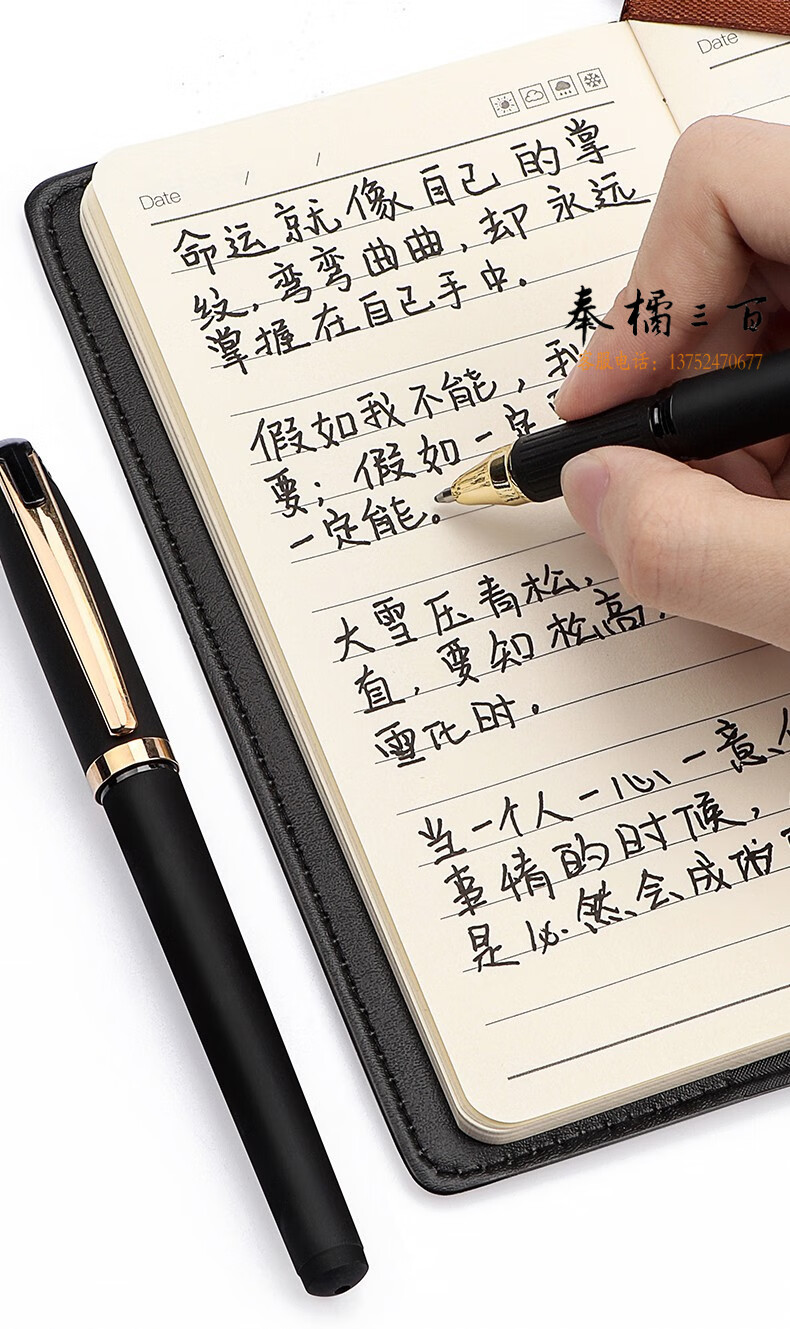 Date / /
Date
命运就像自己的掌
纹，弯弯曲曲，却永远
掌握在自己手中。
奉橘三百
客服电话：13752470677
假如我不能，我
要；假如一定
一定能。
大雪压青松，
直，要知松高，
雪化时。
当一个人一心一意
事情的时候，
是必然会成